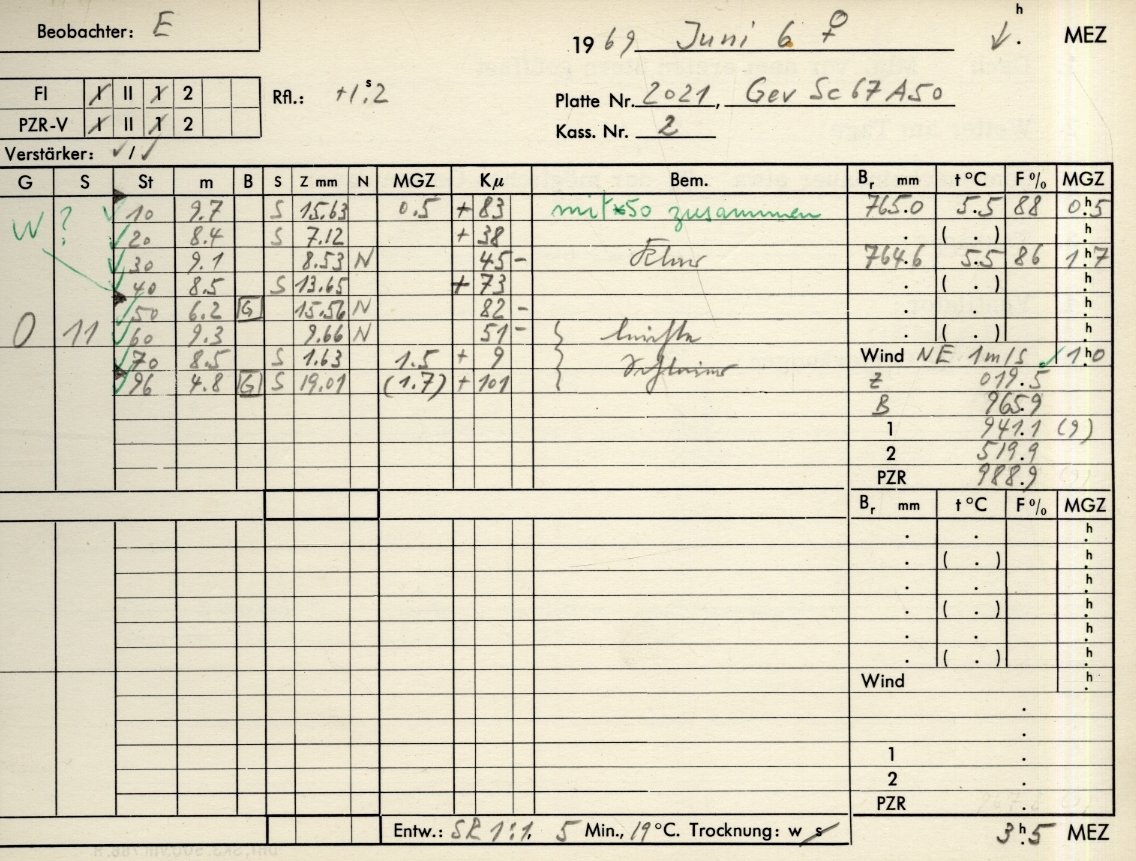 Beobachter: E
1969 Juni 6 ♀ h . MEZ
FI I II 1 2
PZR-V I II 1 2
Rfl.: +1.ˢ2
Platte Nr. 2021, Gev Sc 67 A50
Kass. Nr. 2
Verstärker: √/√
G S St m B S Z mm N MGZ Kμ Bem. Bᵣ mm t °C F % MGZ
W ? 10 9.7 S 15.63 0.5 + 83 mit 50 zusammen 765.0 5.5 88 0.ʰ5
20 8.4 S 7.12 + 38 . ( . ) .ʰ
30 9.1 8.53 N 45 - 764.6 5.5 86 1.ʰ7
40 8.5 S 13.65 + 73 . ( . ) .ʰ
50 6.2 G 15.56 N 82 - . . .ʰ
0 11 60 9.3 9.66 N 51 - . ( . ) .ʰ
70 8.5 S 1.63 1.5 + 9 Wind NE 1 m/s √ 1.ʰ0
96 4.8 G S 19.01 (1.7) + 101 Z 019.5
B 965.9
1 941.1 (9)
2 519.9
PZR 988.9
Bᵣ mm t °C F % MGZ
. . .ʰ
. ( . ) .ʰ
. . .ʰ
. ( . ) .ʰ
. . .ʰ
. ( . ) .ʰ
Wind .ʰ
.
.
1 .
2 .
PZR .
Entw.: SR 1:1. 5 Min., 19 °C. Trocknung: w s
3.ʰ5 MEZ